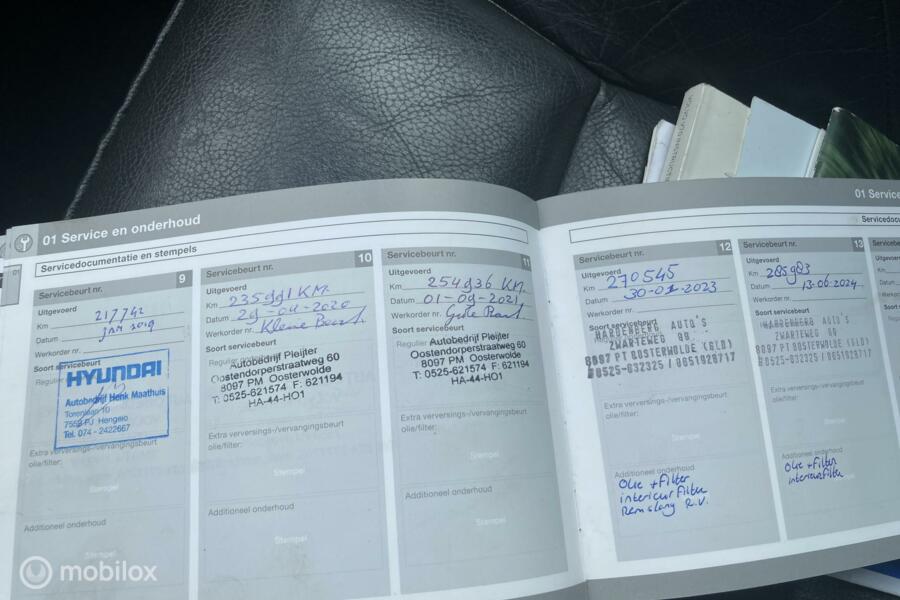 01 Service en onderhoud
Servicedocumentatie en stempels
Servicebeurt nr. 9
Uitgevoerd
Km 217742
Datum jan 2019
Werkorder nr.
Soort servicebeurt
HYUNDAI
Autobedrijf Henk Maathuis
Torenlaan 10
7559 PJ Hengelo
Tel. 074 - 2422667
Extra verversings-/vervangingsbeurt
olie/filter:
Stempel
Additioneel onderhoud
Stempel
Servicebeurt nr. 10
Uitgevoerd
Km 235991 KM
Datum 29-04-2020
Werkorder nr. Kleine Beurt.
Soort servicebeurt
Autobedrijf Pleijter
Oostendorperstraatweg 60
8097 PM Oosterwolde
T: 0525-621574 F: 621194
HA-44-HO1
Extra verversings-/vervangingsbeurt
olie/filter:
Stempel
Additioneel onderhoud
Stempel
Servicebeurt nr. 11
Uitgevoerd
Km 254936 KM.
Datum 01-09-2021
Werkorder nr. Grote Beurt
Soort servicebeurt
Autobedrijf Pleijter
Oostendorperstraatweg 60
8097 PM Oosterwolde
T: 0525-621574 F: 621194
HA-44-HO1
Extra verversings-/vervangingsbeurt
olie/filter:
Stempel
Additioneel onderhoud
Stempel
01 Service
Servicedocu
Servicebeurt nr. 12
Uitgevoerd
Km 270545
Datum 30-01-2023
Werkorder nr.
Soort servicebeurt
HARDENBERG AUTO'S
ZWARTEWEG 90
8097 PT OOSTERWOLDE (GLD)
0525-632325 / 0651928717
Extra verversings-/vervangingsbeurt
olie/filter:
Stempel
Additioneel onderhoud
Olie + Filter
interieur Filter
Remslang R.V.
Servicebeurt nr. 13
Uitgevoerd
Km 285983
Datum 13-06-2024
Werkorder nr.
Soort servicebeurt
HARDENBERG AUTO'S
ZWARTEWEG 90
8097 PT OOSTERWOLDE (GLD)
0525-632325 / 0651928717
Extra verversings-/vervangingsbeurt
olie/filter:
Stempel
Additioneel onderhoud
Olie + Filter
interieurfilter
mobilox